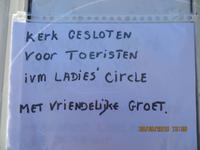 Kerk GESLOTEN
VOOR TOERISTEN
ivm LADIES' CIRCLE
MET VRIENDELIJKE GROET.